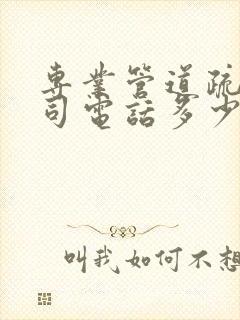 專業管道疏
司電話多少
叫我如何不想